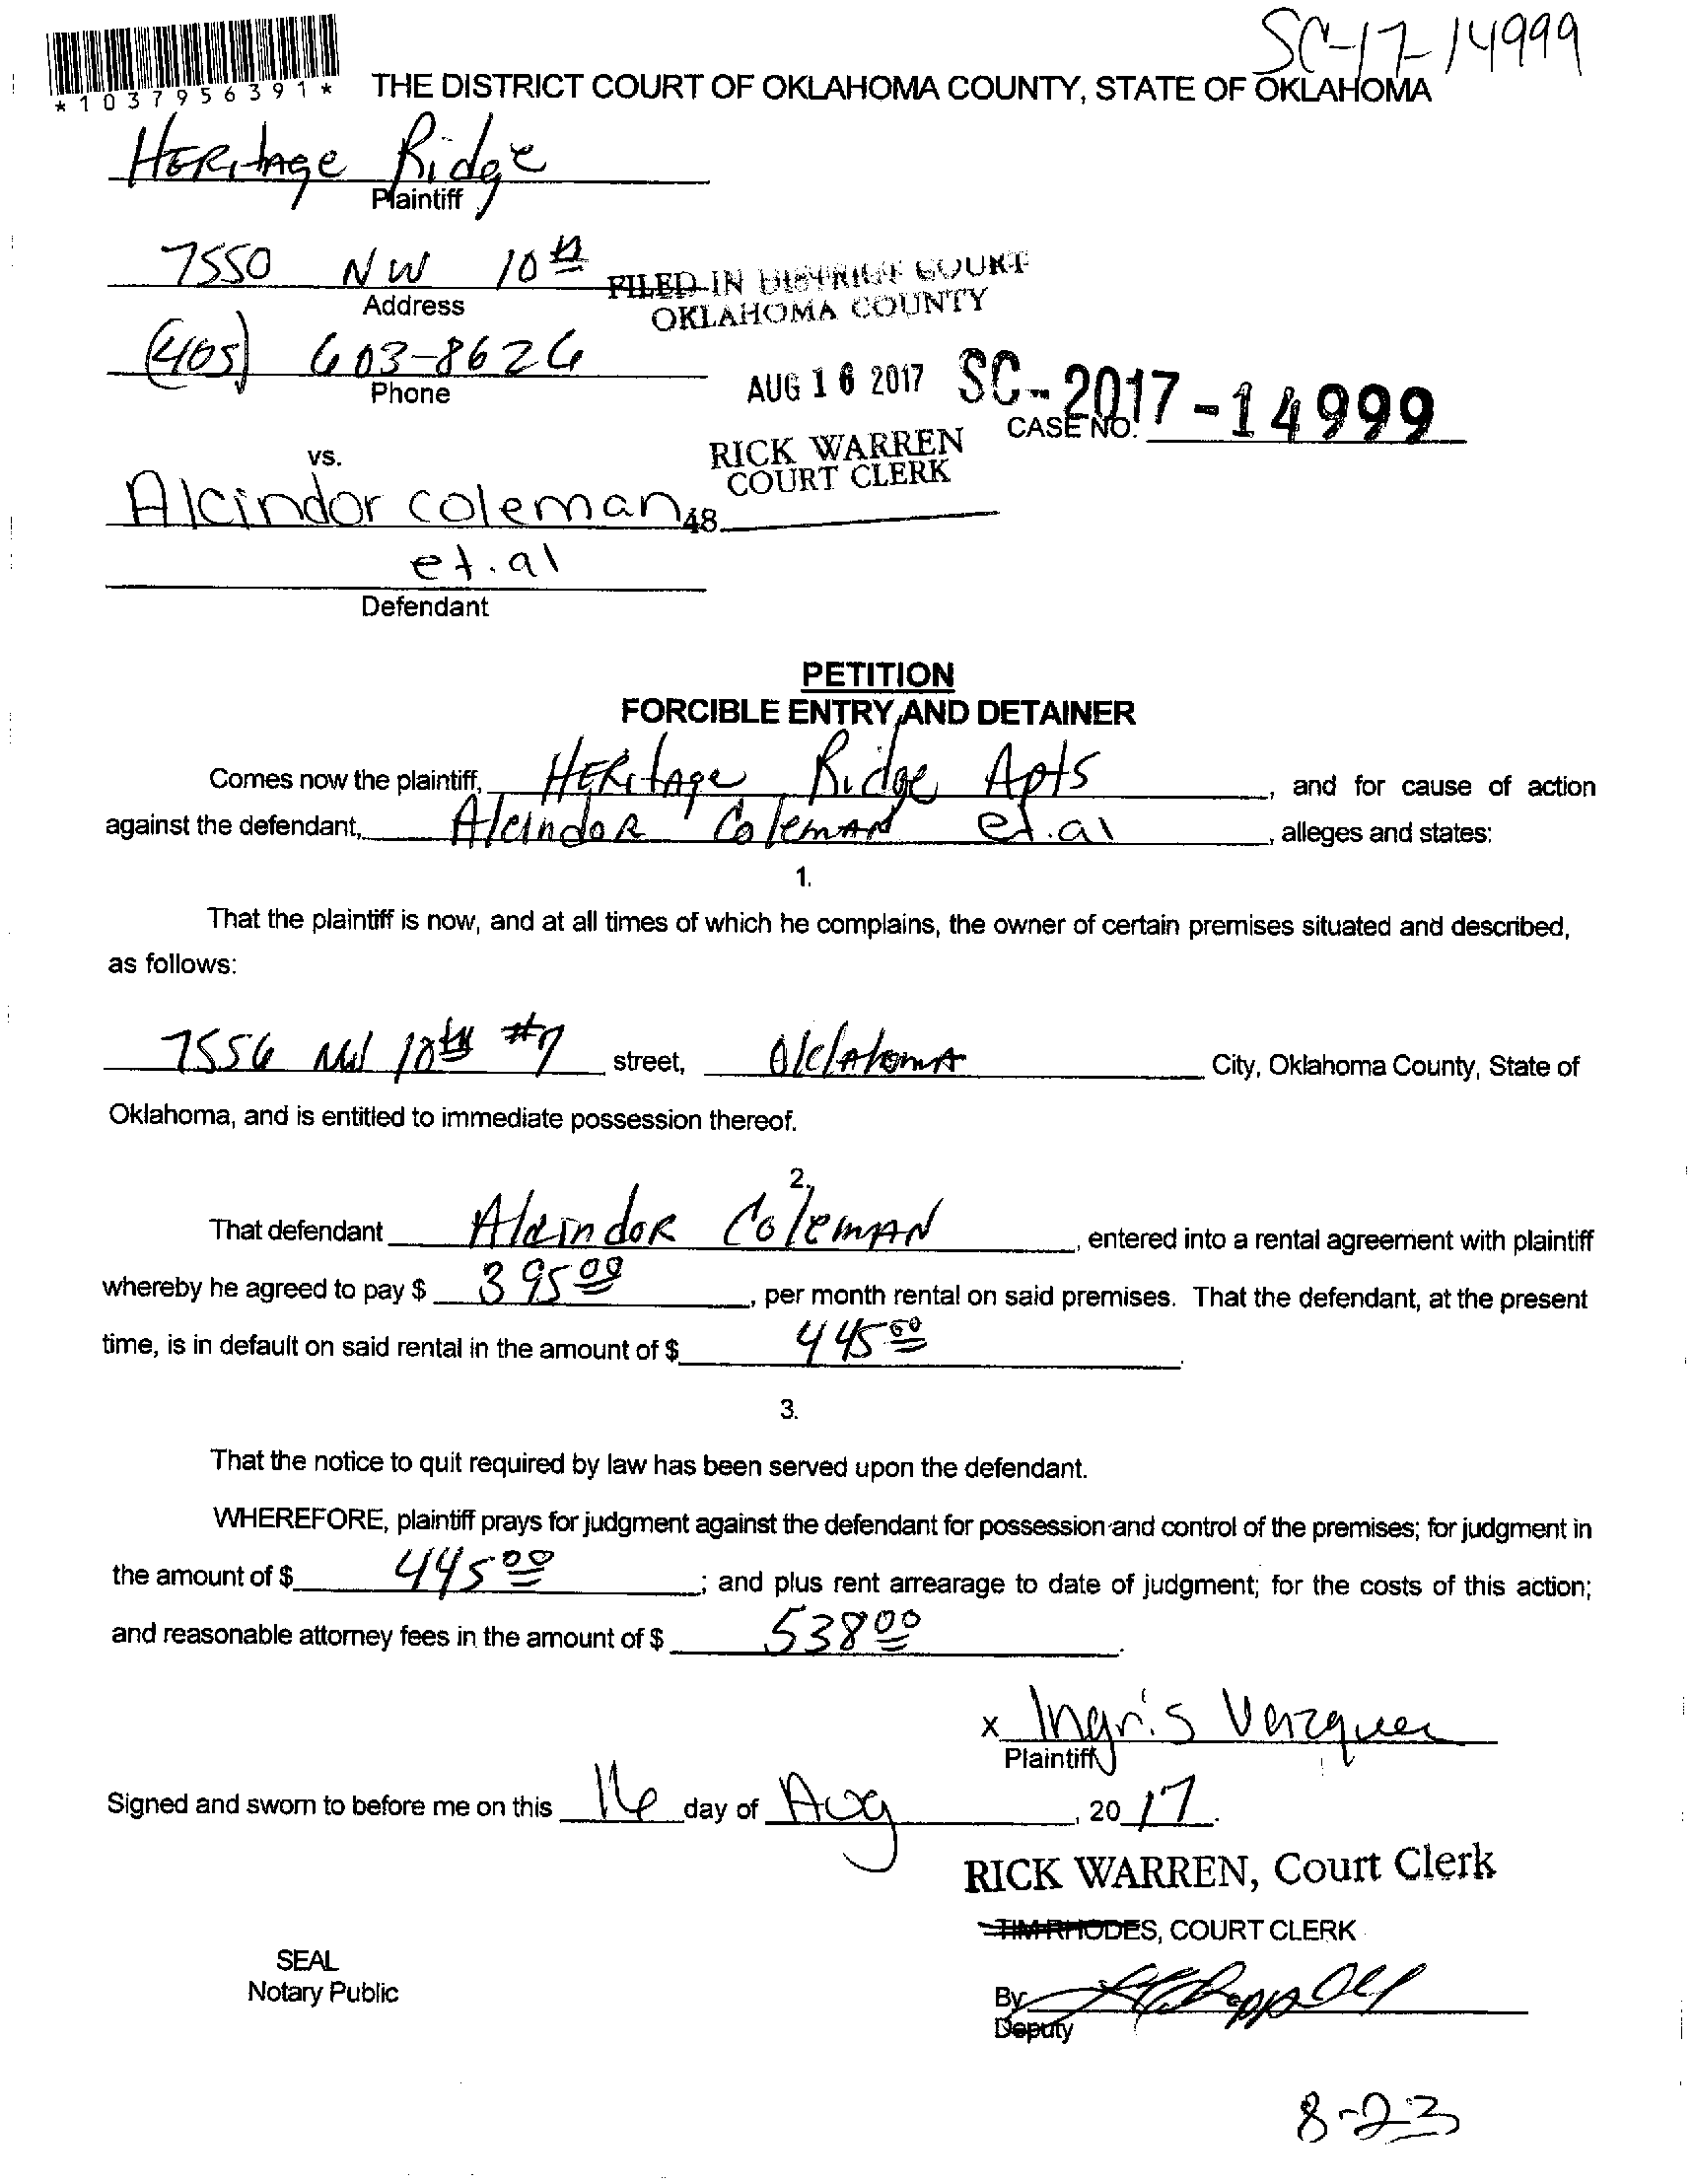 SC-17-14999
*1037956391*
THE DISTRICT COURT OF OKLAHOMA COUNTY, STATE OF OKLAHOMA
HERitAge Ridge
Plaintiff
7550 NW 10th
Address
FILED IN DISTRICT COURT
OKLAHOMA COUNTY
(405) 603-8626
Phone
AUG 16 2017
SC-2017-14999
CASE NO.
RICK WARREN
COURT CLERK
vs.
Alcindor coleman
48
et.al
Defendant
PETITION
FORCIBLE ENTRY AND DETAINER
Comes now the plaintiff, HERitAge Ridge Apts, and for cause of action
against the defendant, AlcindoR ColemAN et.al, alleges and states:
1.
That the plaintiff is now, and at all times of which he complains, the owner of certain premises situated and described,
as follows:
7556 NW 10th #7 street, OklAhomA City, Oklahoma County, State of
Oklahoma, and is entitled to immediate possession thereof.
2.
That defendant AlcindoR ColemAN, entered into a rental agreement with plaintiff
whereby he agreed to pay $ 395 00, per month rental on said premises. That the defendant, at the present
time, is in default on said rental in the amount of $ 445 00.
3.
That the notice to quit required by law has been served upon the defendant.
WHEREFORE, plaintiff prays for judgment against the defendant for possession and control of the premises; for judgment in
the amount of $ 445 00; and plus rent arrearage to date of judgment; for the costs of this action;
and reasonable attorney fees in the amount of $ 538 00.
x Ingris Vazquez
Plaintiff
Signed and sworn to before me on this 16 day of Aug, 20 17.
RICK WARREN, Court Clerk
TIM RHODES, COURT CLERK
SEAL
Notary Public
By
Deputy
8-23